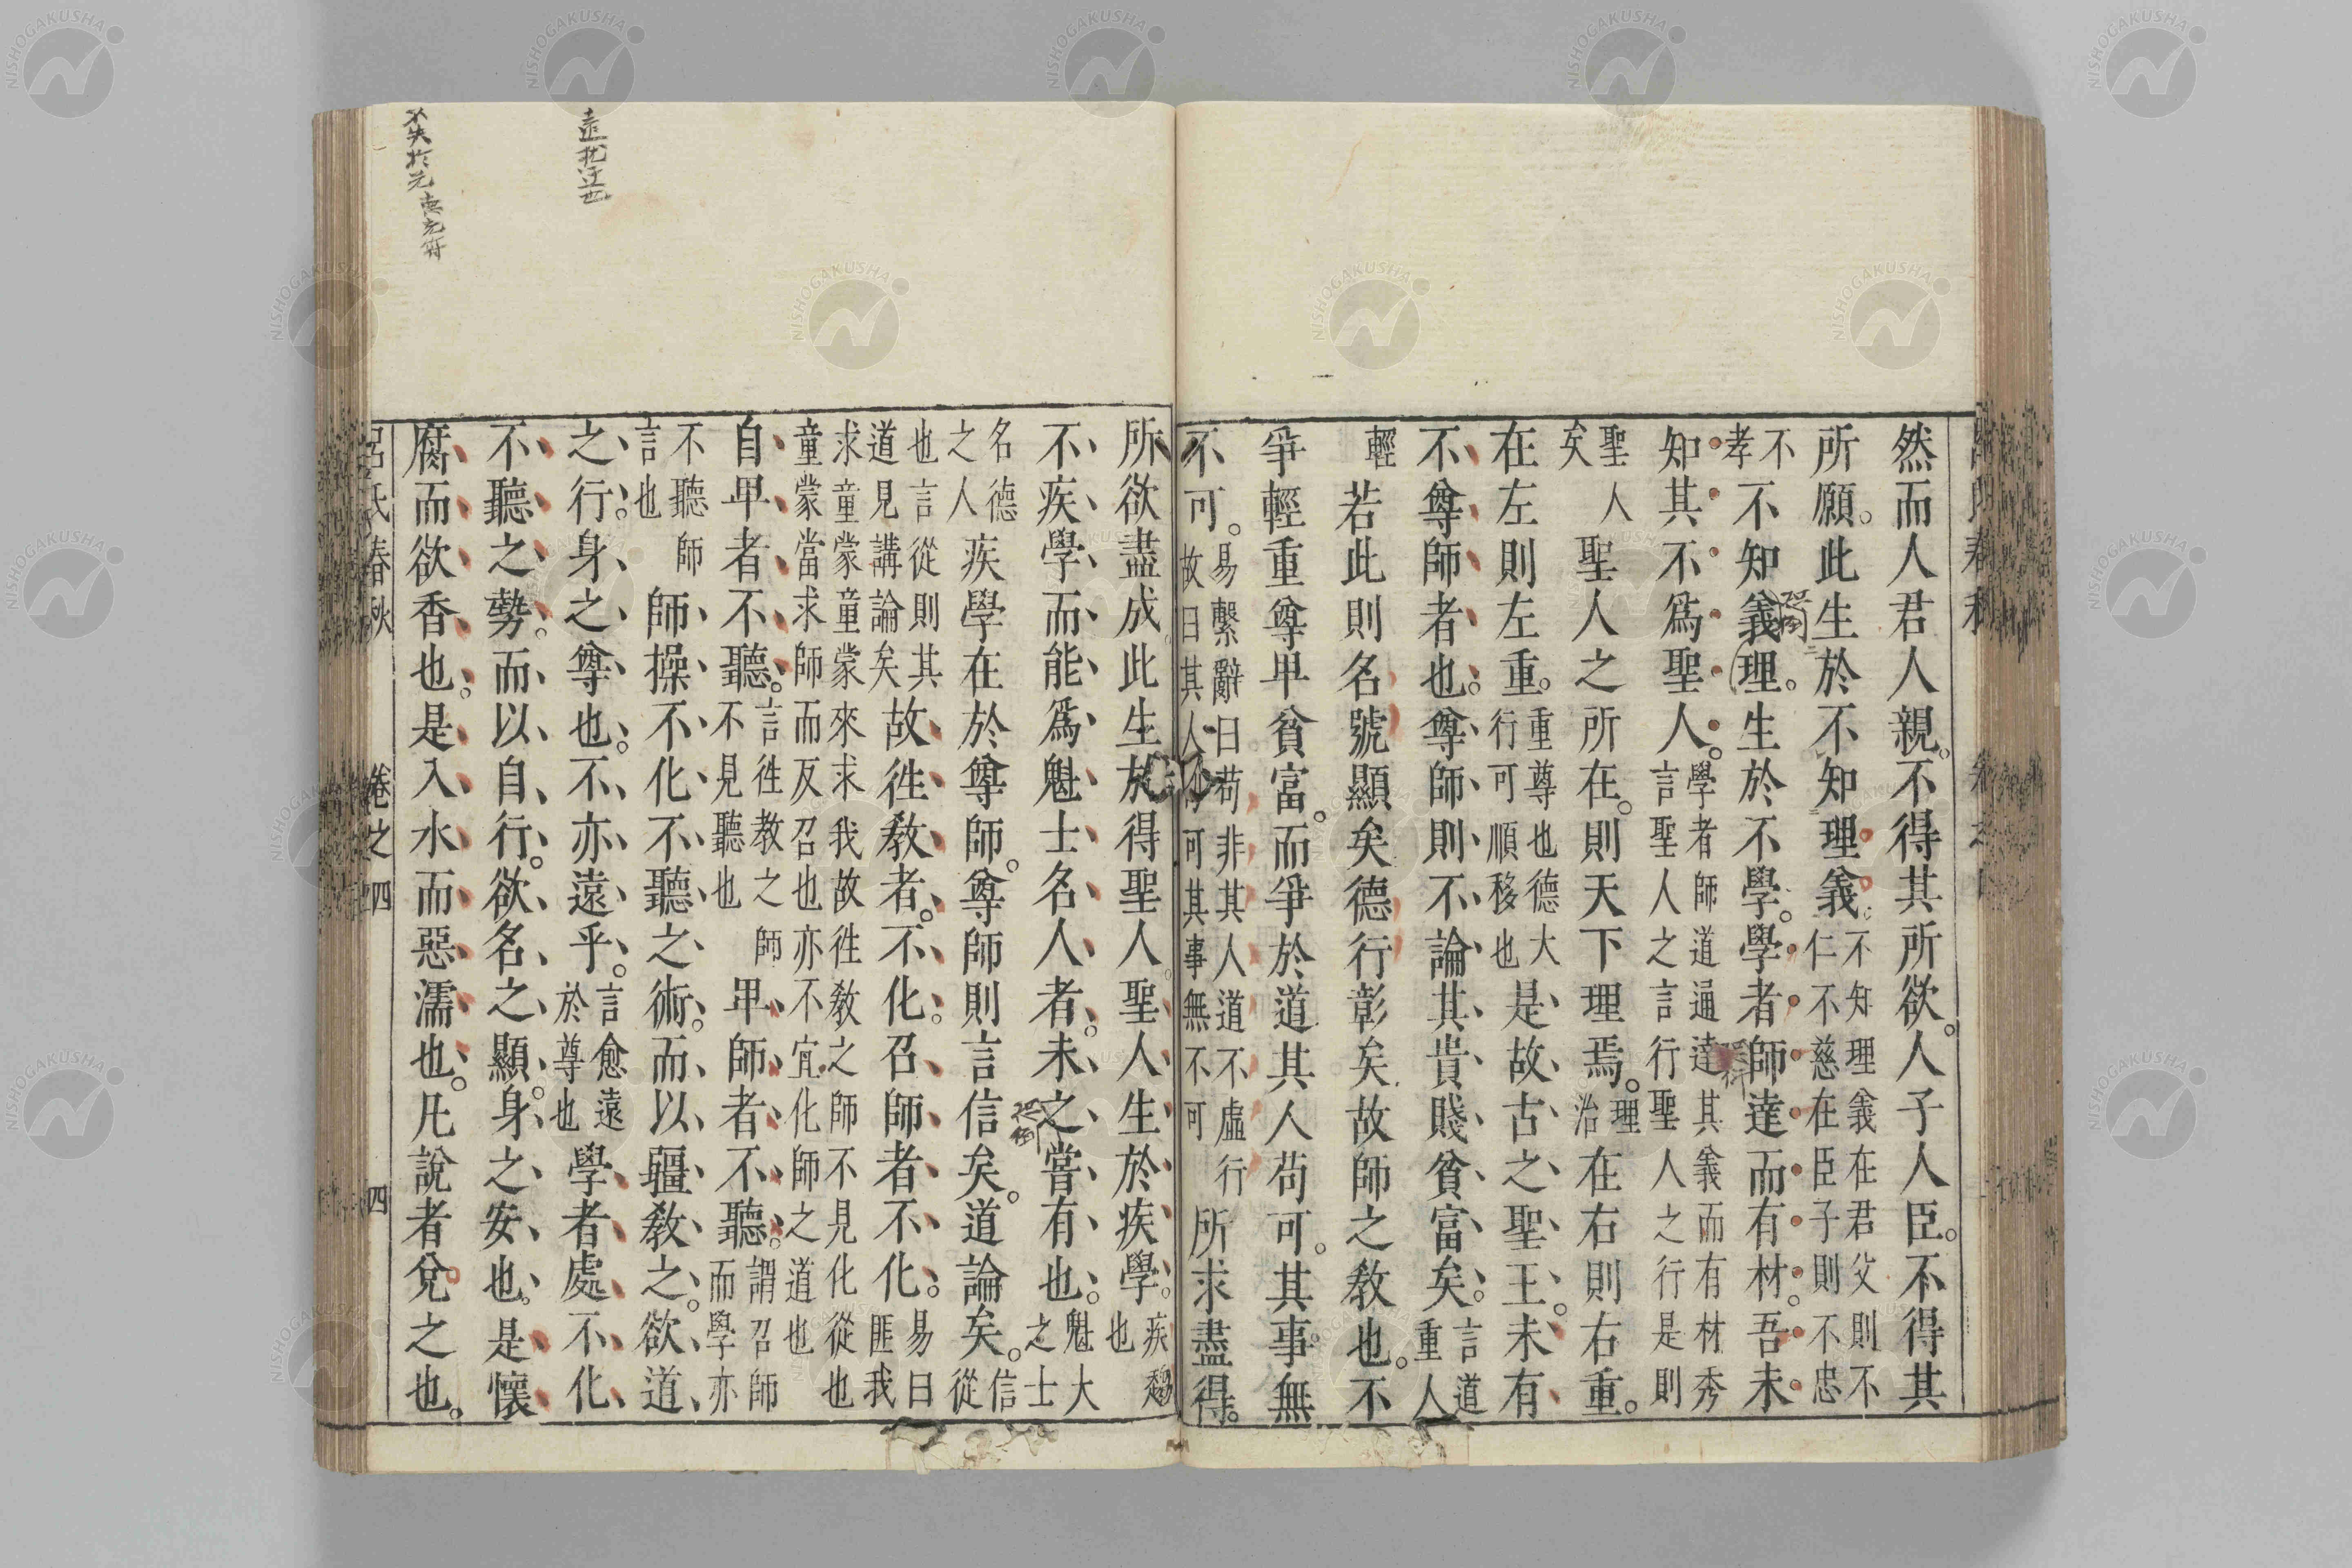 然而人君人親。不得其所欲。人子人臣。不得其
所願。此生於不知理義。不知理義在君父則不仁不慈在臣子則不忠
不孝不知義理。生於不學。學者師達而有材。吾未
知其不爲聖人。學者師道通達其義而有材秀言聖人之言行聖人之行是則
聖人矣聖人之所在。則天下理焉。理治在右則右重。
在左則左重。重尊也德大行可順移也是故古之聖王。未有
不尊師者也。尊師則不論其貴賤貧富矣。言道重人
輕若此則名號顯矣德行彰矣故師之教也。不
爭輕重尊卑貧富。而爭於道其人苟可。其事無
不可。易繫辭曰苟非其人道不虛行故曰其人可其事無不可所求盡得。
所欲盡成此生於得聖人聖人生於疾學。疾趨也
不疾學而能爲魁士名人者。未之嘗有也。魁大之士
名德之人疾學在於尊師。尊師則言信矣。道論矣。信從
也言從則其道見講論矣故往教者。不化。召師者不化。易曰匪我
求童蒙童蒙來求我故往教之師不見化從也童蒙當求師而反召也亦不宜化師之道也
自卑者不聽。言往教之師不見聽也卑師者不聽。謂召師而學亦
不聽師言也師操不化不聽之術。而以彊教之。欲道
之行。身之尊也。不亦遠乎。言愈遠於尊也學者處不化
不聽之勢。而以自行。欲名之顯。身之安也。是懷
腐而欲香也。是入水而惡濡也。凡說者兌之也。
呂氏春秋 卷之四 四